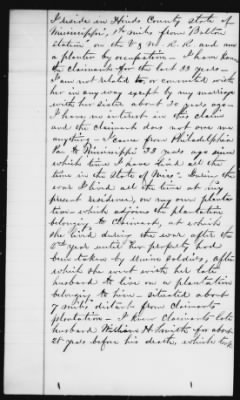 I reside in Hinds County state of
Mississippi, 1½ miles from "Bolton
Station" on the V & M. R. R and am
a planter by occupation. I have known
the claimant for the last 33 years.
I am not related to, or connected with
her in any way except by my marriage
with her sister about 30 years ago
I have no interest in this claim
and the claimant does not owe me
anything - I came from Philadelphia
Pa to Mississippi 33 years ago since
which time I have lived all the
time in the State of Miss - During the
war I lived all the time at my
present residence, on my own planta
tion which adjoins the plantation
belonging to Claimant, at which
she lived during the war after the
year until her property had
been taken by Union soldiers, after
which she went with her late
husband to live on a plantation
belonging to him - situated about
7 miles distant from Claimants
plantation - I knew Claimants late
husband William H. Smith for about
28 years before his death, which took